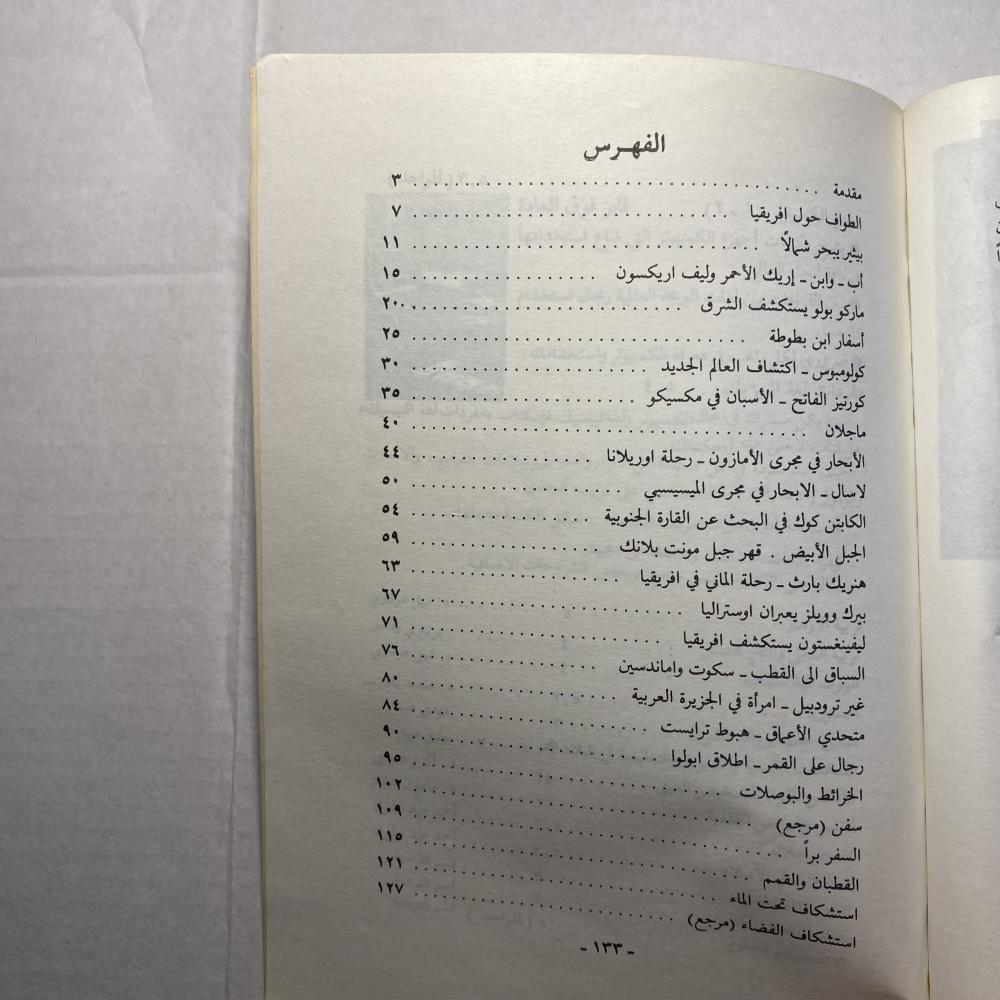 الفهرس
مقدمة ........ ٣
الطواف حول افريقيا ........ ٧
بيثير يبحر شمالاً ........ ١١
أب ـ وابن ـ إريك الأحمر وليف اريكسون ........ ١٥
ماركو بولو يستكشف الشرق ........ ٢٠
أسفار ابن بطوطة ........ ٢٥
كولومبوس ـ اكتشاف العالم الجديد ........ ٣٠
كورتيز الفاتح ـ الأسبان في مكسيكو ........ ٣٥
ماجلان ........ ٤٠
الأبحار في مجرى الأمازون ـ رحلة اوريلانا ........ ٤٤
لاسال ـ الابحار في مجرى الميسيسبي ........ ٥٠
الكابتن كوك في البحث عن القارة الجنوبية ........ ٥٤
الجبل الأبيض . قهر جبل مونت بلانك ........ ٥٩
هنريك بارث ـ رحلة الماني في افريقيا ........ ٦٣
بيرك وويلز يعبران اوستراليا ........ ٦٧
ليفينغستون يستكشف افريقيا ........ ٧١
السباق الى القطب ـ سكوت واماندسين ........ ٧٦
غير ترودبيل ـ امرأة في الجزيرة العربية ........ ٨٠
متحدي الأعماق ـ هبوط ترايست ........ ٨٤
رجال على القمر ـ اطلاق ابولوا ........ ٩٠
الخرائط والبوصلات ........ ٩٥
سفن (مرجع) ........ ١٠٢
السفر براً ........ ١٠٩
القطبان والقمم ........ ١١٥
استشكاف تحت الماء ........ ١٢١
استشكاف الفضاء (مرجع) ........ ١٢٧
- ١٣٣ -